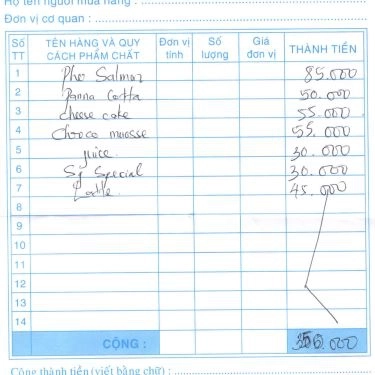 Họ tên người mua hàng :
Đơn vị cơ quan :
Số TT TÊN HÀNG VÀ QUY CÁCH PHẨM CHẤT Đơn vị tính Số lượng Giá đơn vị THÀNH TIỀN
1 Pho Salmon 85.000
2 Panna Cotta 50.000
3 cheese cake 55.000
4 Choco mousse 55.000
5 juice 30.000
6 Special 30.000
7 45.000
8
9
10
11
12
13
14
CỘNG : 350.000
Cộng thành tiền (viết bằng chữ) :